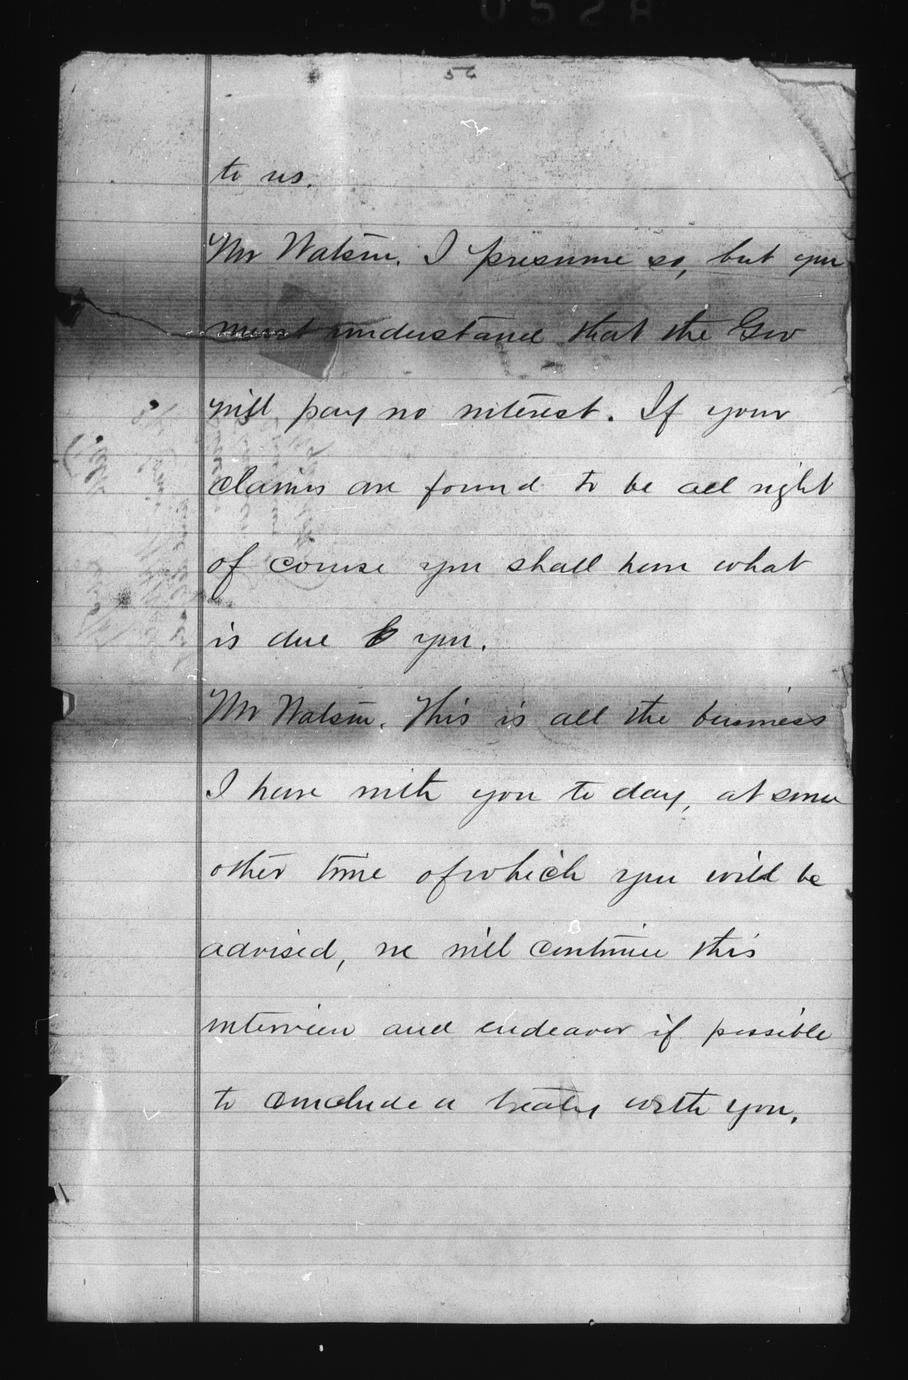 0528
56
to us.
Mr Watson. I presume so, but you
must understand that the Gov
will pay no interest. If your
claims are found to be all right
of course you shall have what
is due to you.
Mr Watson. This is all the business
I have with you to day, at some
other time of which you will be
advised, we will continue this
interview and endeavor if possible
to conclude a treaty with you.